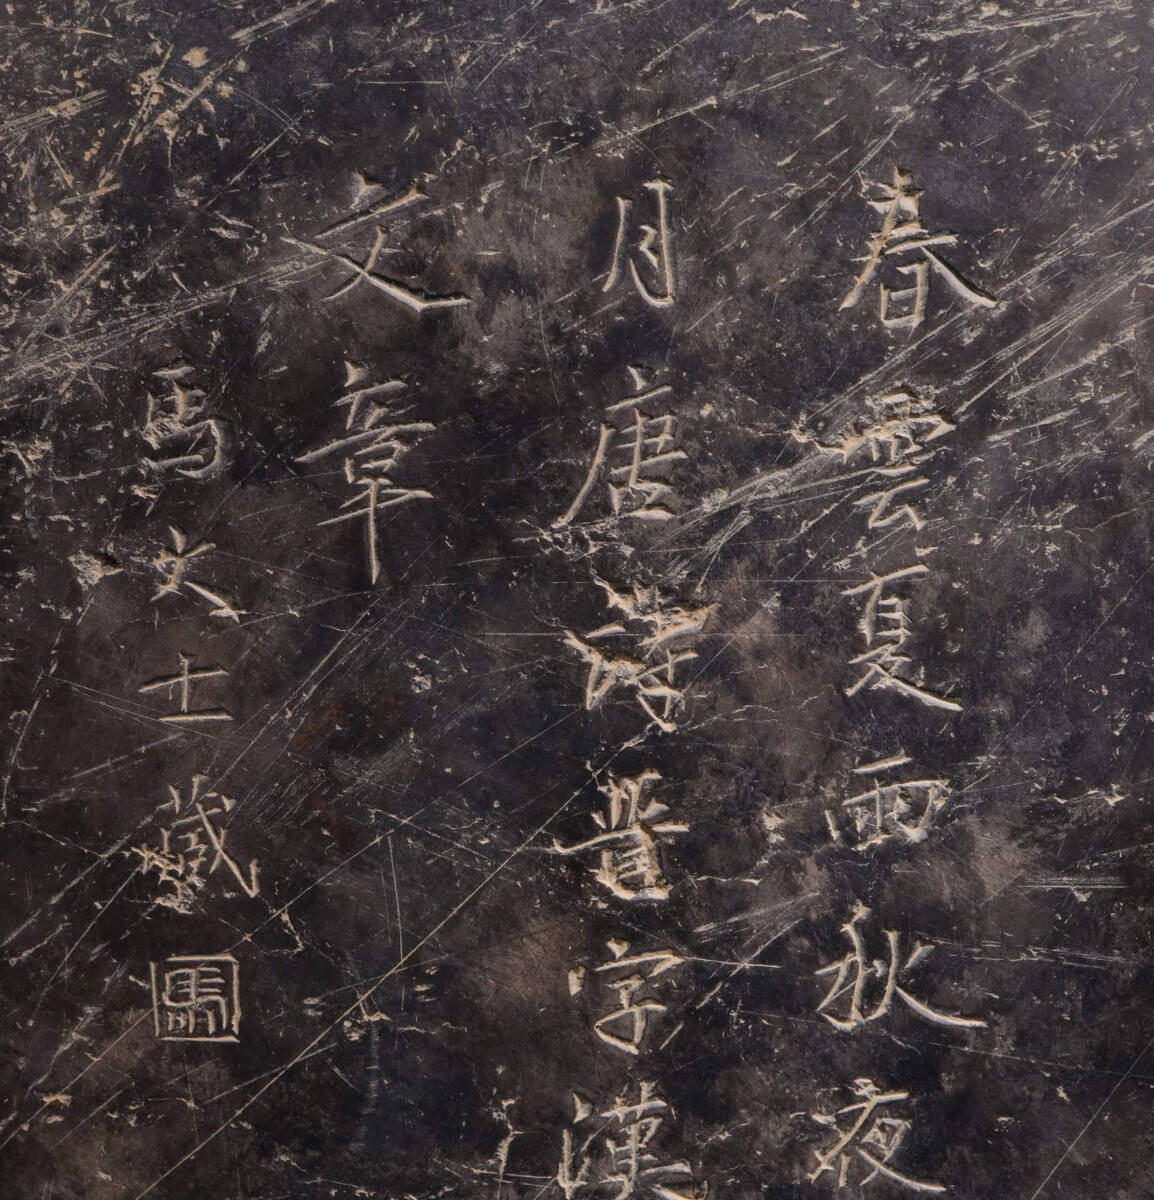 春雲夏雨秋夜
月唐詩晉字漢
文章
馬大士藏
馬